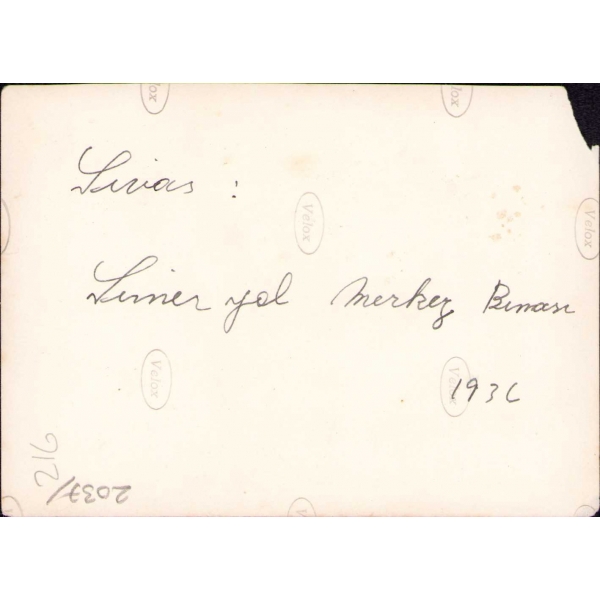 Velox
Velox
Sivas :
Velox
Velox
Simeryol Merkez Binası
Velox
Velox
1936
216
2037/